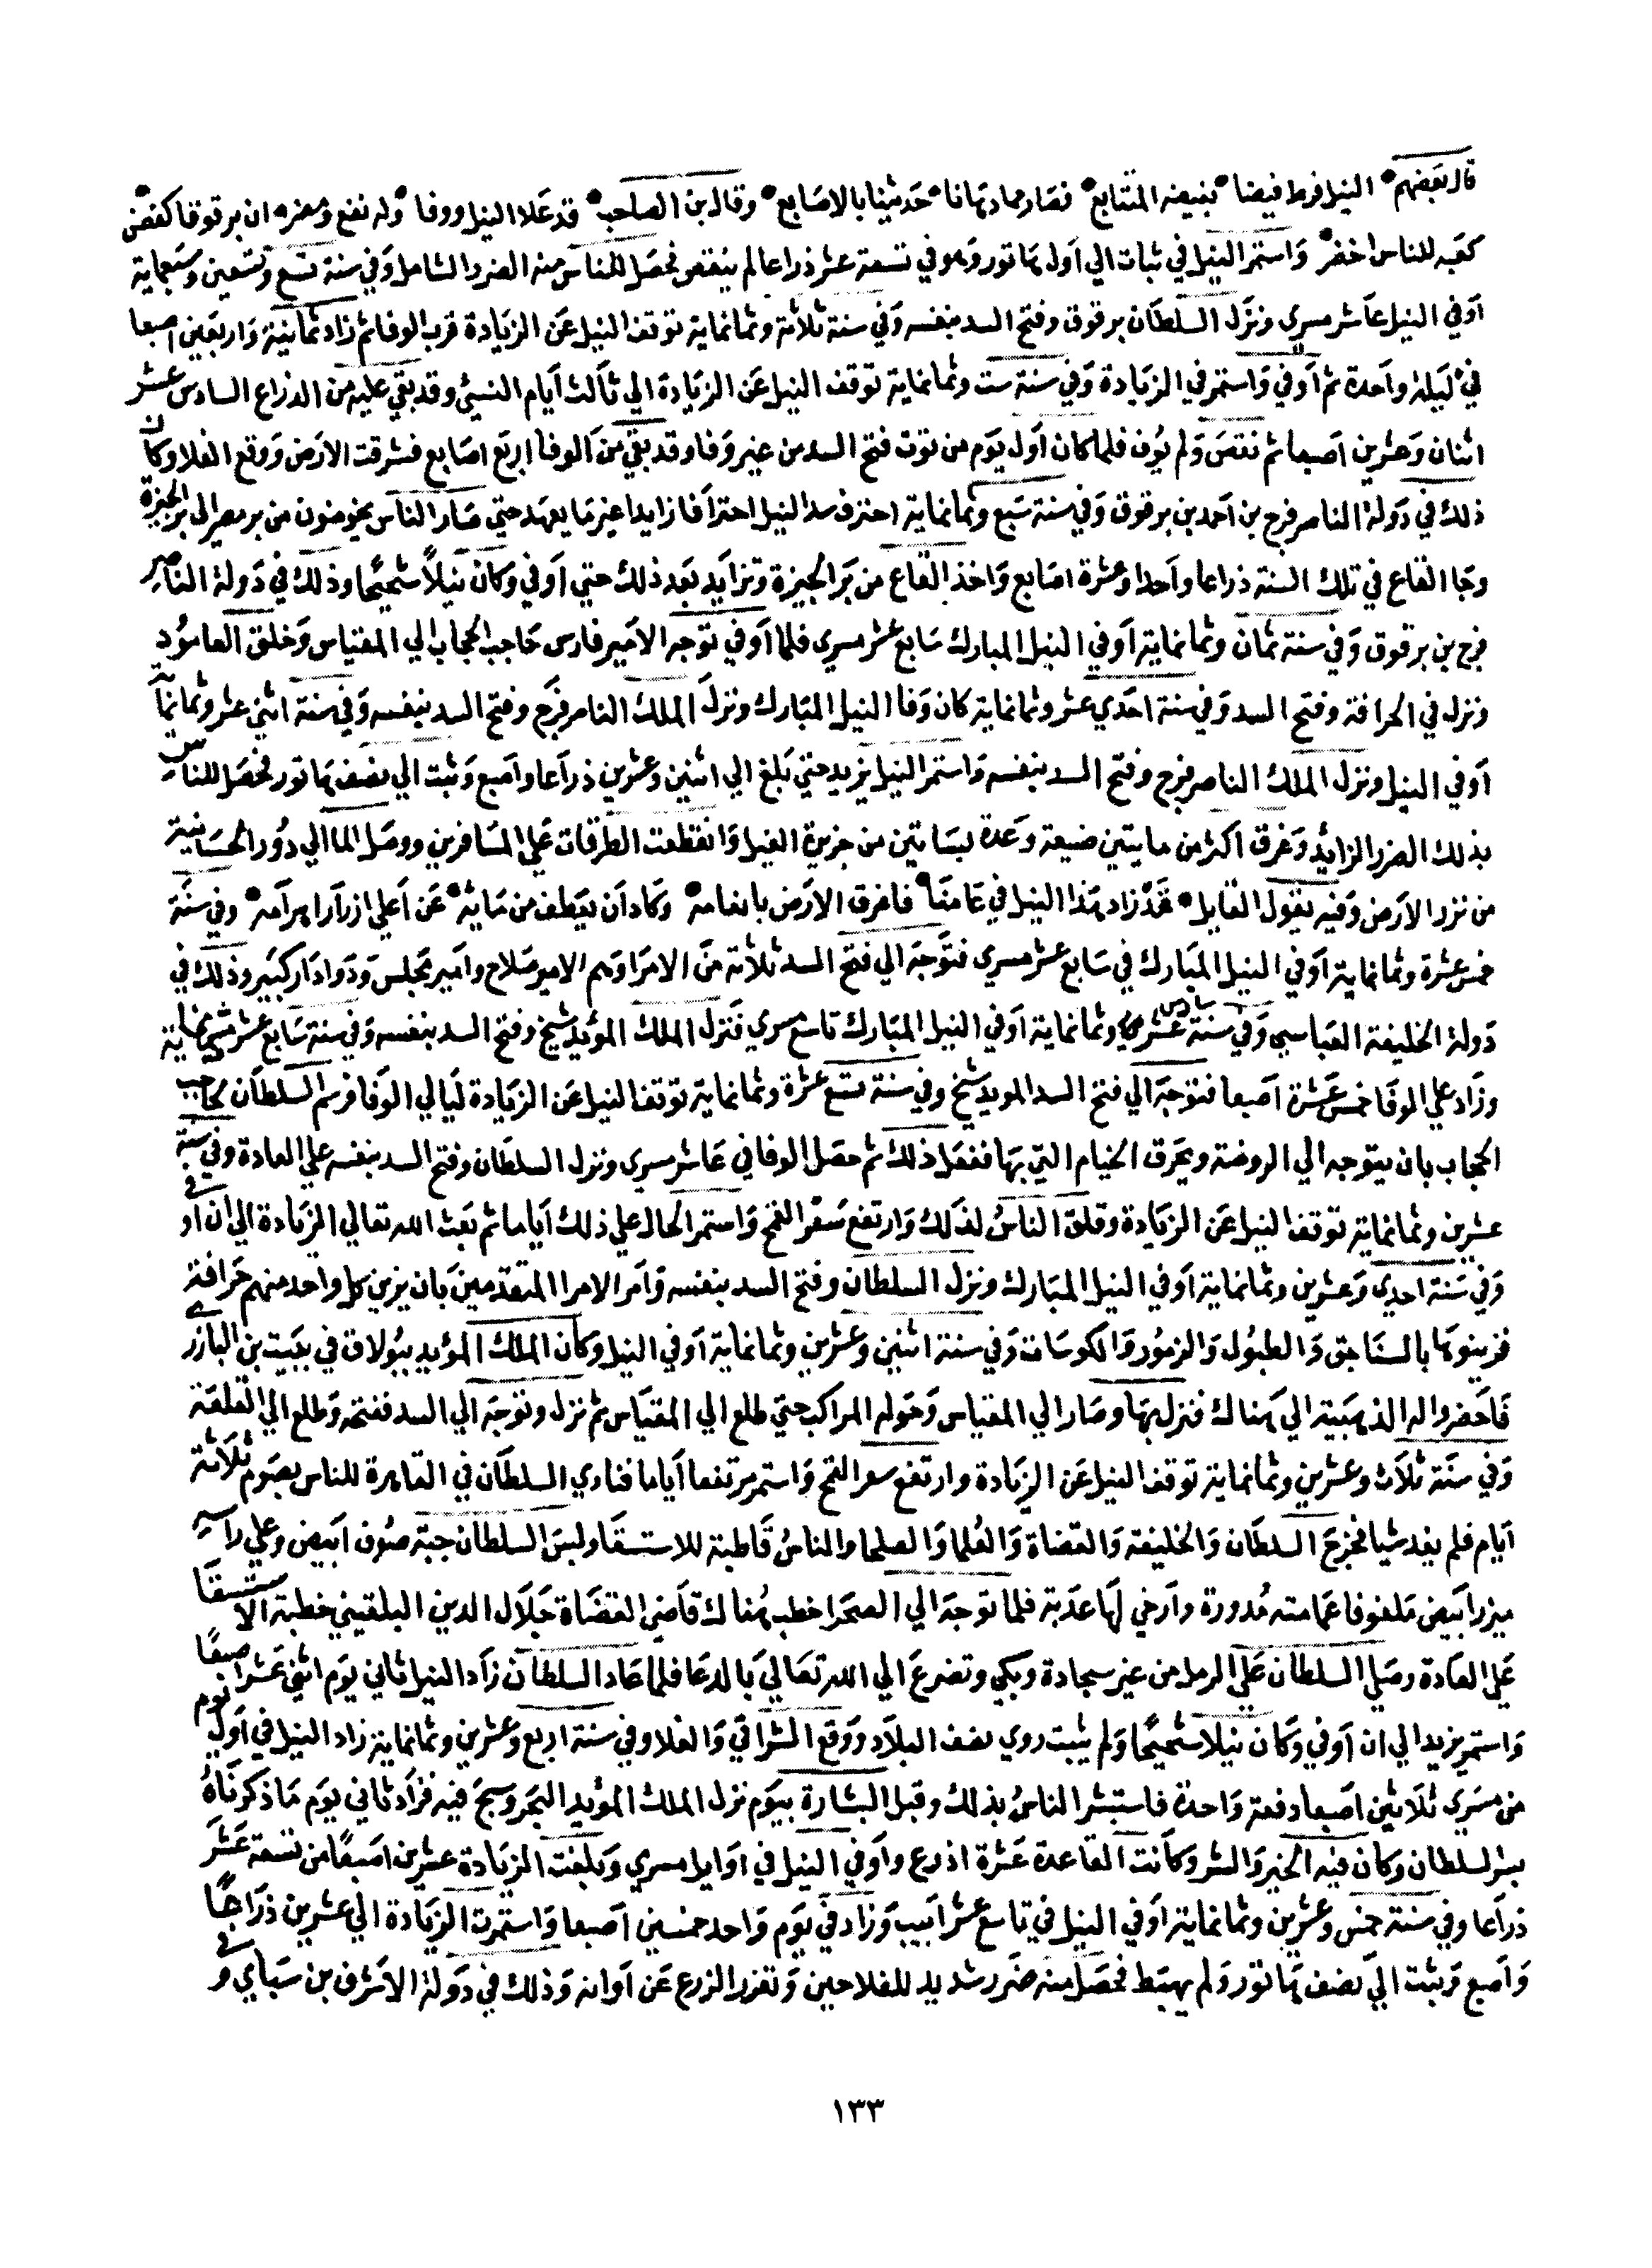 قال بعضهم • النيل فرط فيضا • بفيضه المتتابع • فصار مما دهانا • حديثنا بالاصابع • وقال بن الصاحب • قد علا النيل ووفا • وله نفع وضر • ان برقوقا كفض
كعبه للناس اخضر • واستمر النيل في ثبات الي اول هاتور وهو في تسعة عشر ذراعا لم ينقص فحصل للناس منه الضرر الشامل وفي سنة تسع وتسعين وسبعماية
اوفي النيل عاشر مسري ونزل السلطان برقوق وفتح السد بنفسه وفي سنة ثلاثة وثمانماية توقف النيل عن الزيادة قرب الوفا ثم زاد ثمانية واربعين اصبعا
في ليلة واحدة ثم اوفي واستمر في الزيادة وفي سنة ست وثمانماية توقف النيل عن الزيادة الي ثالث ايام النسئ وقد بقي عليه من الذراع السادس عشر
اثنان وعشرين اصبعا ثم نقص ولم يوف فلما كان اول يوم من توت فتح السد من غير وفا وقد بقي من الوفا اربع اصابع فشرقت الارض ووقع الغلا وكان
ذلك في دولة الناصر فرج بن احمد بن برقوق وفي سنة سبع وثمانماية احترق سد النيل احتراقا زايدا غير ما يعهد حتي صار الناس يخوضون من بر مصر الى بر الجيزة
وجا القاع في تلك السنة ذراعا واحدا وعشرة اصابع واخذ القاع من بر الجيزة وتزايد بعد ذلك حتي اوفي وكان نيلا شحيحا وذلك في دولة الناصر
فرج بن برقوق وفي سنة ثمان وثمانماية اوفي النيل المبارك سابع عشر مسري فلما اوفي توجه الامير فارس حاجب الحجاب الي المقياس وخلق العامود
ونزل في الحراقة وفتح السد وفي سنة احدي عشر وثمانماية كان وفا النيل المبارك ونزل الملك الناصر فرج وفتح السد بنفسه وفي سنة اثني عشر وثمانماية
اوفي النيل ونزل الملك الناصر فرج وفتح السد بنفسه واستمر النيل يزيد حتي بلغ الي اثنين وعشرين ذراعا واصبع وثبت الي نصف هاتور فحصل للناس
بذلك الضرر الزايد وغرق اكثر من مايتين ضيعة وعدة بساتين من جزيرة الفيل وانقطعت الطرقات علي المسافرين ووصل الما الي دور الحسانية
من نزر الارض وفيه يقول القايل • قد زاد هذا النيل في عامنا • فاغرق الارض بانعامه • وكاد ان يعطف من مائه • عن اعلي ازرار اهرامه • وفي سنة
خمس عشرة وثمانماية اوفي النيل المبارك في سابع عشر مسري فتوجه الي فتح السد ثلاثة من الامرا وهم الامير سلاح وامير مجلس ودوادار كبير وذلك في
دولة الخليفة العباسي وفي سنة سادس عشر وثمانماية اوفي النيل المبارك تاسع مسري فنزل الملك المؤيد شيخ وفتح السد بنفسه وفي سنة سابع عشر وثمانماية
وزاد علي الوفا خمس عشرة اصبعا فتوجه الي فتح السد المويد شيخ وفي سنة تسع عشرة وثمانماية توقف النيل عن الزيادة ليالي الوفا فرسم السلطان لحاجب
الحجاب بان يتوجه الي الروضة ويحرق الخيام التي بها ففعل ذلك ثم حصل الوفا في عاشر مسري ونزل السلطان وفتح السد بنفسه علي العادة وفي سنة
عشرين وثمانماية توقف النيل عن الزيادة وقلق الناس لذلك وارتفع سعر القمح واستمر الحال علي ذلك اياما ثم بعث الله تعالي الزيادة الي ان اوفي
وفي سنة احدي وعشرين وثمانماية اوفي النيل المبارك ونزل السلطان وفتح السد بنفسه وامر الامرا المتقدمين بان يزين كل واحد منهم حراقة
فزينوها بالسناجق والطبول والزمور والكوسات وفي سنة اثنين وعشرين وثمانماية اوفي النيل وكان الملك المؤيد ببولاق في بيت بن البازري
فاحضروا له الذهبية الي هناك فنزل بها وصار الي المقياس وحوله المراكب حتي طلع الي المقياس ثم نزل وتوجه الي السد ففتحه وطلع الي القلعة
وفي سنة ثلاث وعشرين وثمانماية توقف النيل عن الزيادة وارتفع سعر القمح واستمر مرتفعا اياما فنادي السلطان في القاهرة للناس بصوم ثلاثة
ايام فلم يفد شيا فخرج السلطان والخليفة والقضاة والعلما والصلحا والناس قاطبة للاستسقا ولبس السلطان جبة صوف ابيض وعلي راسه
ميزر ابيض ملفوفا عمامته مدورة وارخي لها عذبة فلما توجه الي الصحرا خطب هناك قاضي القضاة جلال الدين البلقيني خطبة الاستسقا
علي العادة وصلي السلطان علي الرمل من غير سجادة وبكي وتضرع الي الله تعالي بالدعا فلما عاد السلطان زاد النيل ثاني يوم اثني عشر اصبعًا
واستمر يزيد الي ان اوفي وكان نيلا شحيحًا ولم يثبت روي نصف البلاد ووقع الشراقي والغلا وفي سنة اربع وعشرين وثمانماية زاد النيل في اول يوم
من مسري ثلاثين اصبعا دفعة واحدة فاستبشر الناس بذلك وقبل البشارة بيوم نزل الملك المؤيد البحر وسبح فيه فزاد ثاني يوم ما ذكرناه
بسر السلطان وكان فيه الخير والسر وكانت القاعدة عشرة اذرع واوفي النيل في اوايل مسري وبلغت الزيادة عشرين اصبعًا من تسعة عشر
ذراعا وفي سنة خمس وعشرين وثمانماية اوفي النيل في تاسع عشر ابيب وزاد في يوم واحد خمسين اصبعا واستمرت الزيادة الي عشرين ذراعًا
واصبع وثبت الي نصف هاتور ولم يهبط فحصل منه ضرر شديد للفلاحين وتعذر الزرع عن اوانه وذلك في دولة الاشرف بن سباي وفي
١٣٣